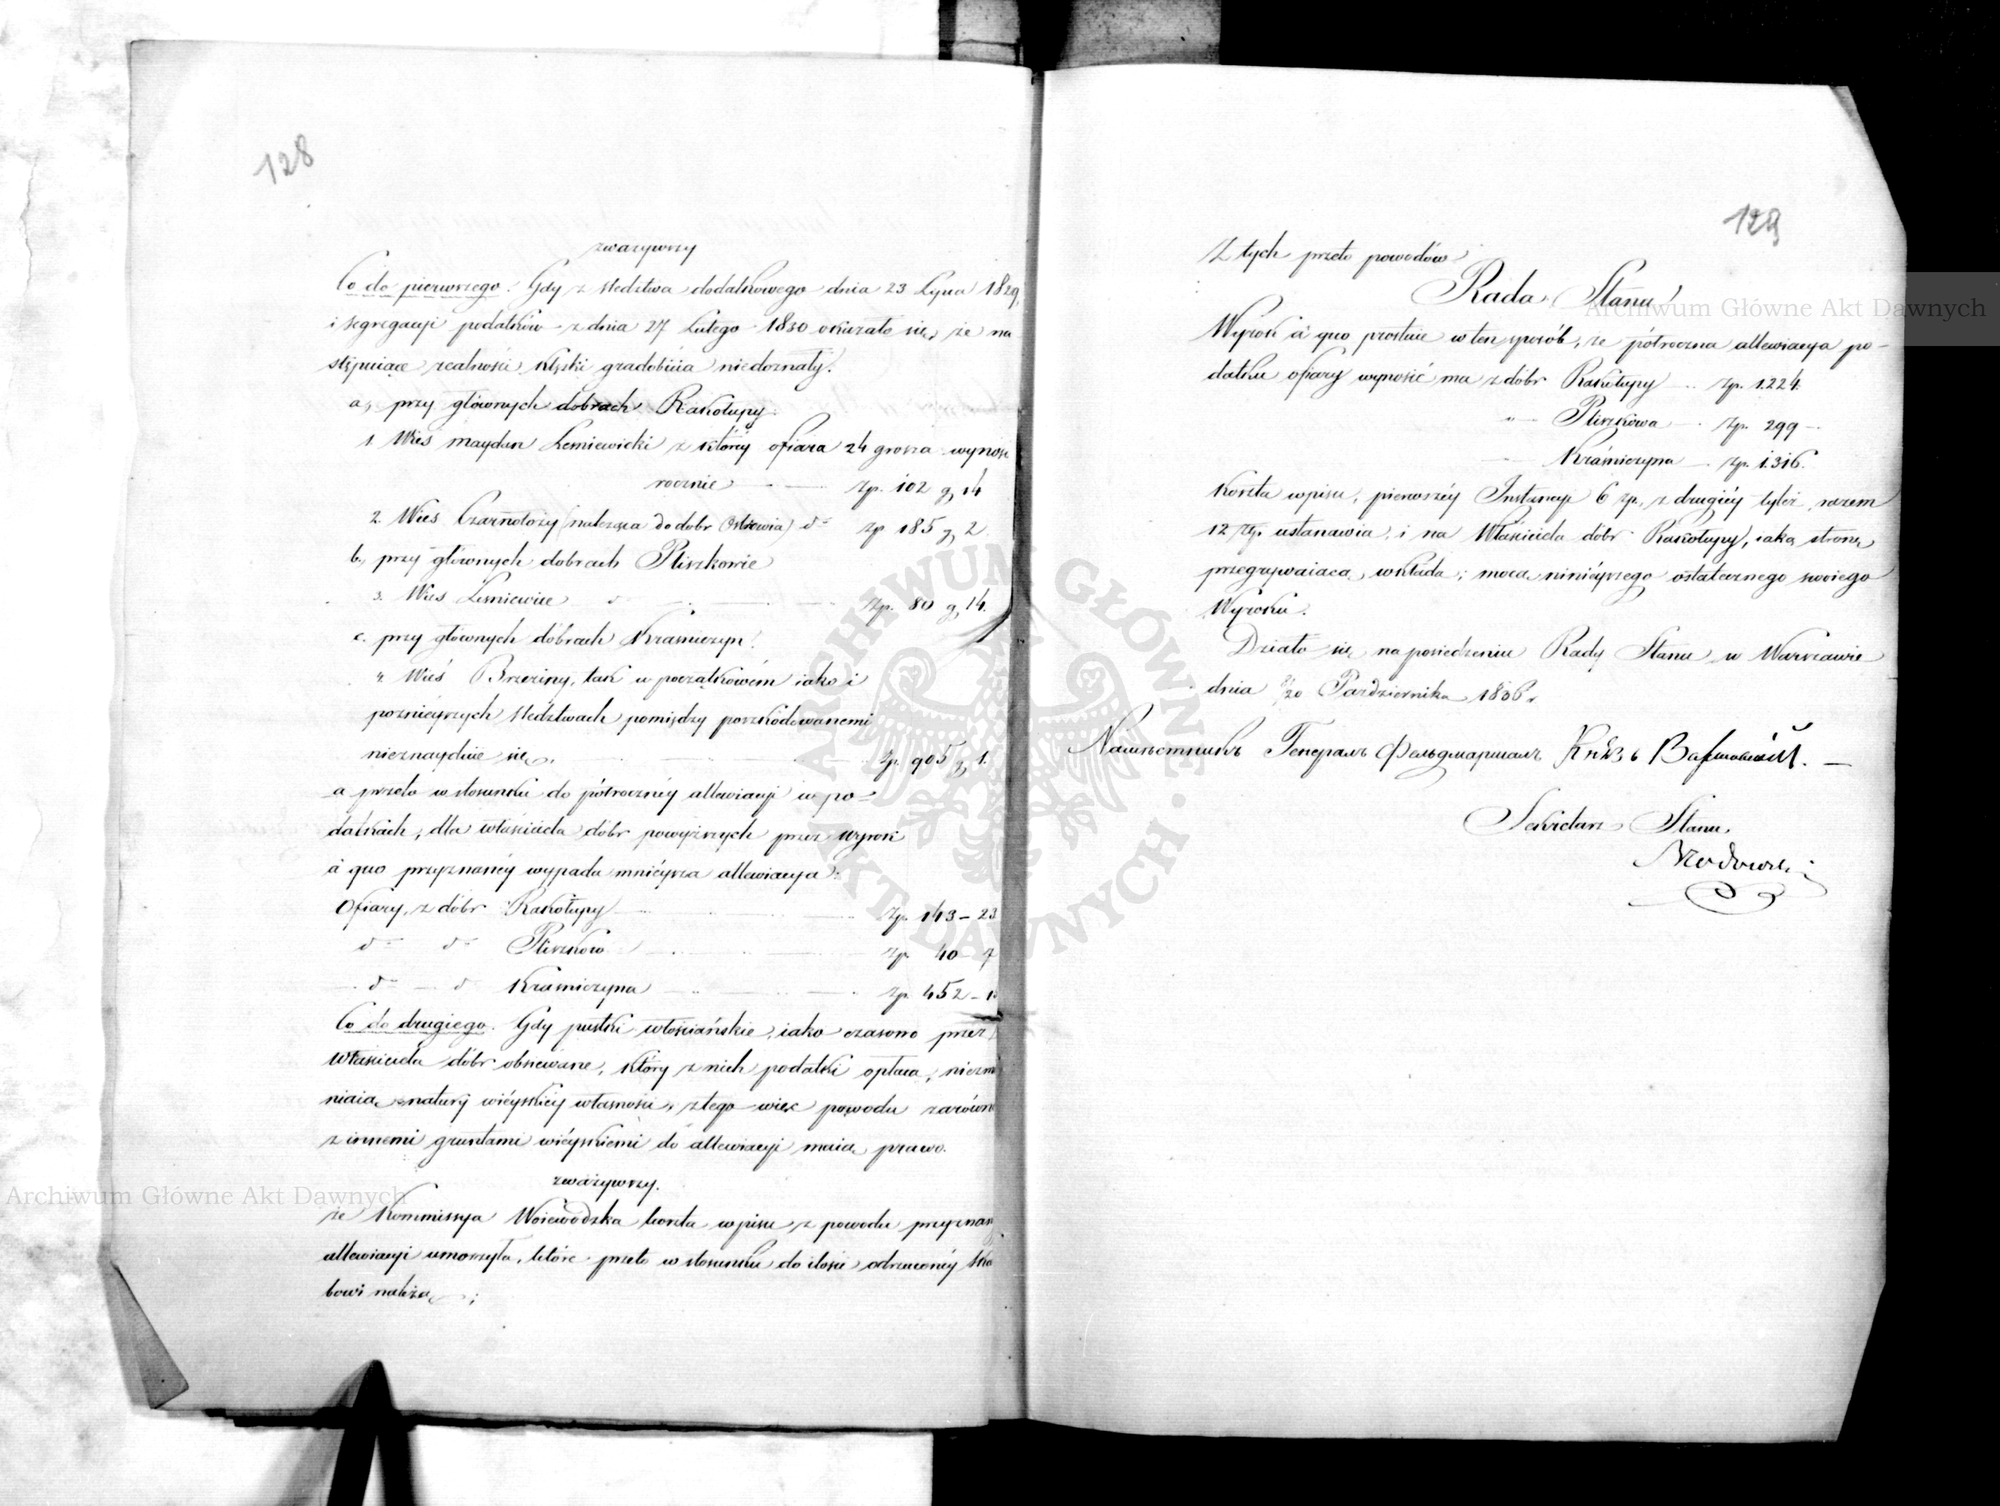 128
zważywszy
Co do pierwszego. Gdy z śledztwa dodatkowego dnia 23 Lipca 1829
i segregacyi podatków z dnia 27 Lutego 1830 okazało się, że na
stępuiące realności klęski gradobicia niedoznały.
a, przy głównych dobrach Rakołupy.
1. Wieś maydan Leśniewicki z któréj ofiara 24 grosza wynosi
rocznie Zp. 102 g, 14
2. Wieś Czarnołozy (należąca do dobr Ostrowia) do Zp 185 g, 2
b, przy głównych dobrach Pliszkowie
3. Wieś Leśniewice do Zp. 80 g, 14.
c. przy głównych dóbrach Kraśniczyn.
4. Wieś Brzeziny, tak w początkowém iako i
poznieyszych śledztwach pomiędzy poszkodowanemi
nieznayduie się Zp. 905 g, 1.
a przeto w stosunku do półrocznéy allewiacyi w po=
datkach, dla właściciela dóbr powyższych przez wyrok
à quo przyznanéy wypada mnieysza allewiacya:
Ofiary, z dóbr Rakołupy Zp. 143 – 23
do do Pliszków Zp. 40 – 7
do do Kraśniczyna Zp. 452 – 1
Co do drugiego. Gdy pustki włościańskie, iako czasowo przez
Właściciela dóbr obsiewane, który z nich podatki opłaca, niezm
niaią natury wiéyskiéy własności, z tego więc powodu zarówn
z innemi gruntami wiéyskiemi do allewiacyi maią prawo.
zważywszy.
że Kommissya Woiewódzka koszta wpisu z powodu przyznan
allewiacyi umorzyła, które przeto w stosunku do ilości odrzuconéy ska
bowi należą;
129
Z tych przeto powodów
Rada Stanu
Wyrok à quo prostuie w ten sposób, że półroczna allewiacya po-
datku ofiary wynosić ma z dóbr Rakołupy Zp. 1.224
Pliszkowa Zp. 299 –
Kraśniczyna Zp. 1.316.
Koszta wpisu, pierwszéy Instancyi 6 zp, z drugiéy tyleż, razem
12 Zp. ustanawia, i na Właściciela dóbr Rakołupy, iako stronę
przegrywaiącą, wkłada; mocą ninieyszego ostatecznego swoiego
Wyroku.
Działo się na posiedzeniu Rady Stanu w Warszawie
dnia 8/20 Października 1836 r.
Намѣстникъ Генералъ Фельдмаршалъ Князь Варшавскій.
Sekretarz Stanu,
Archiwum Główne Akt Dawnych
Archiwum Główne Akt Dawnych
ARCHIWUM GŁÓWNE AKT DAWNYCH